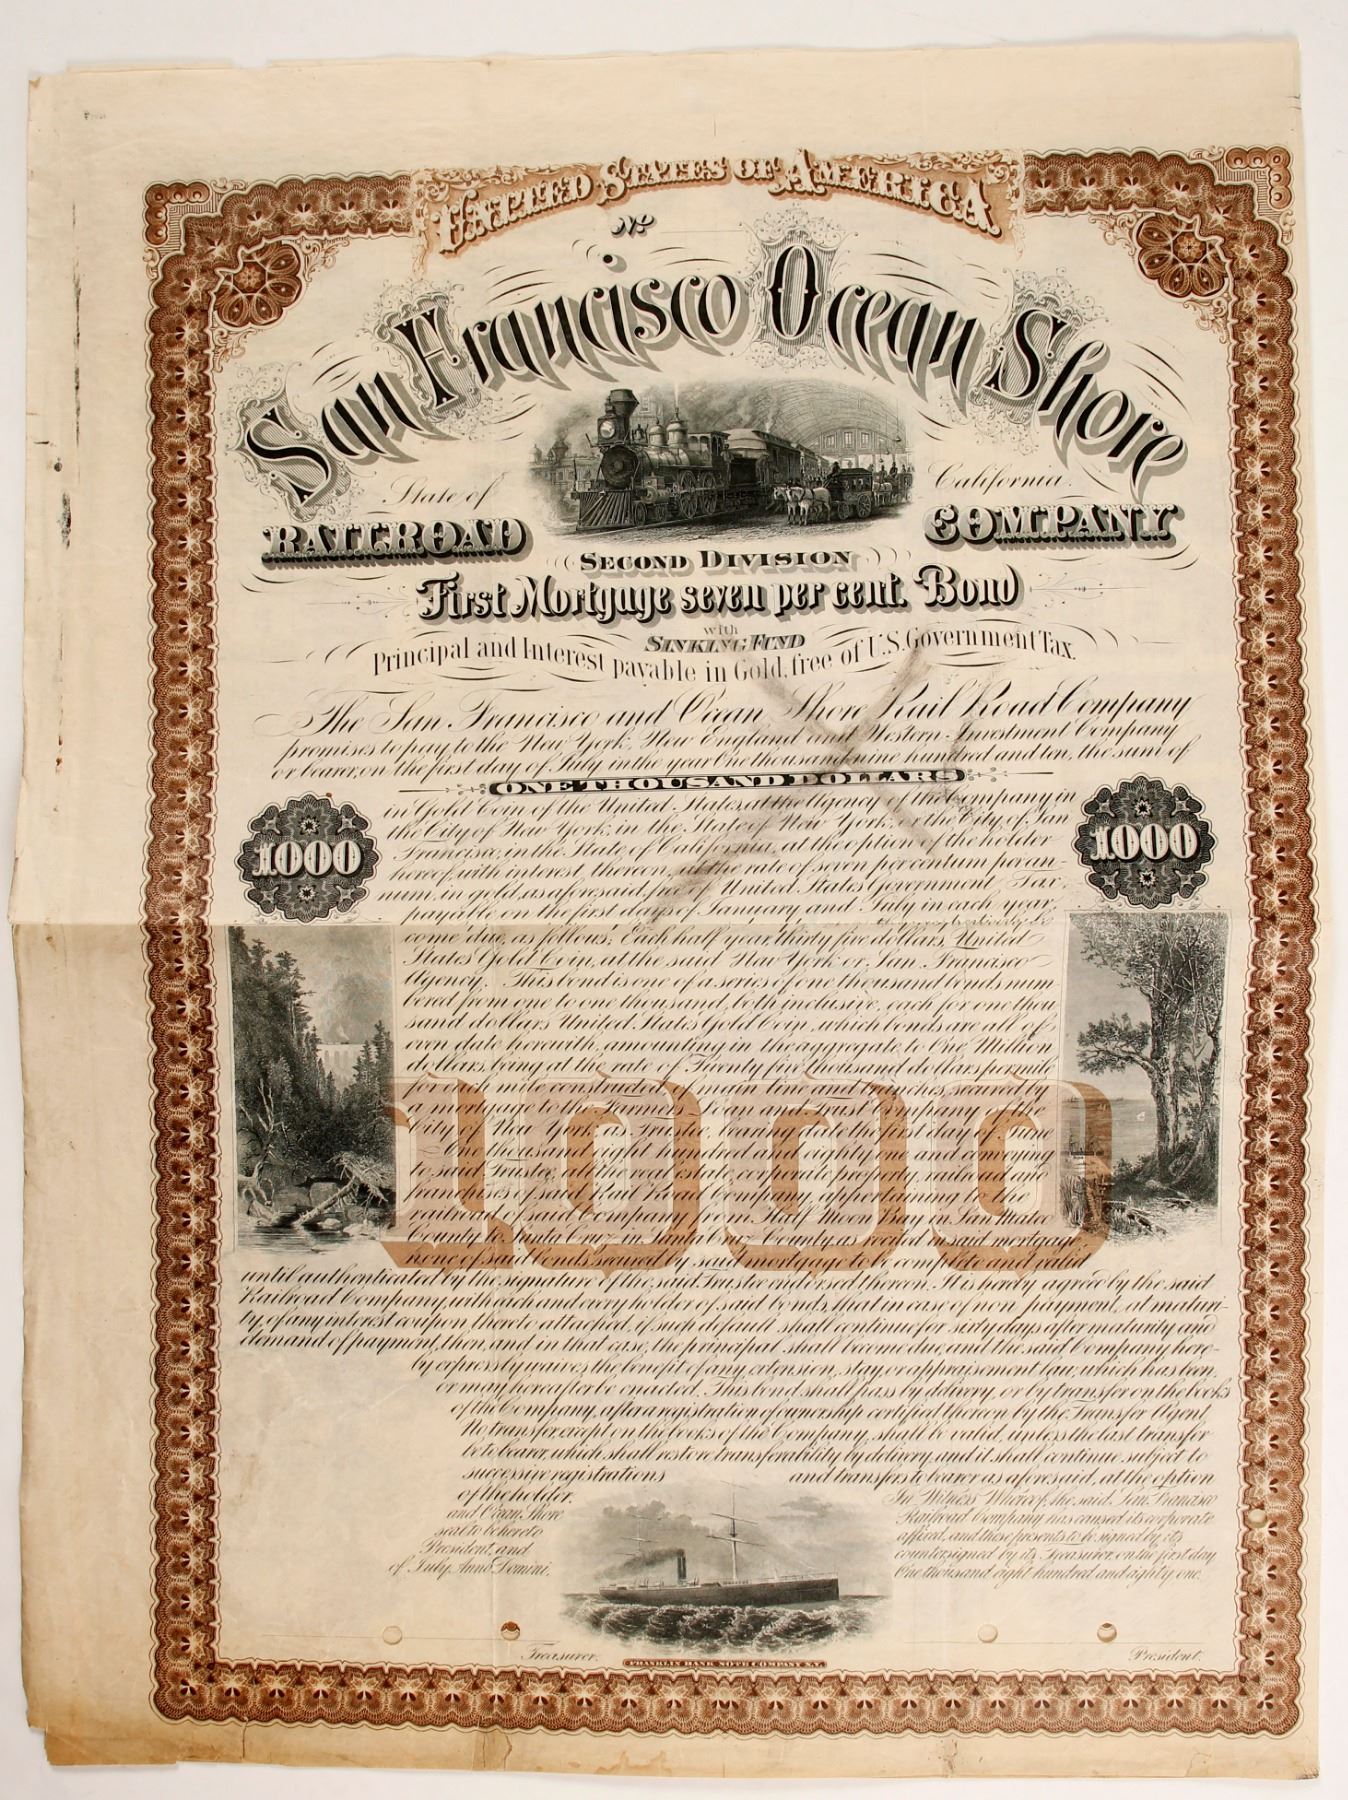 United States of America
No
San Francisco and Ocean Shore
State of California.
RAILROAD COMPANY
SECOND DIVISION
First Mortgage seven per cent. Bond
with
SINKING FUND
Principal and Interest payable in Gold, free of U.S. Government Tax.
The San Francisco and Ocean Shore Rail Road Company
promises to pay to the New York, New England and Western Investment Company
or bearer, on the first day of July in the year One thousand nine hundred and ten, the sum of
ONE THOUSAND DOLLARS
in Gold Coin of the United States, at the Agency of the Company in
the City of New York, in the State of New York, or the City of San
Francisco, in the State of California, at the option of the holder
hereof, with interest thereon, at the rate of seven per centum per an-
num, in gold, as aforesaid, free of United States Government Tax,
payable on the first days of January and July in each year,
1000
1000
come due, as follows: Each half year, thirty five dollars, United
States Gold Coin, at the said New York or San Francisco
Agency. This bond is one of a series of one thousand bonds num
bered from one to one thousand, both inclusive, each for one thou
sand dollars United States Gold Coin, which bonds are all of
even date herewith, amounting in the aggregate, to One Million
dollars, being at the rate of Twenty five thousand dollars per mile
for each mile constructed of main line and branches, secured by
a mortgage to the Farmers Loan and Trust Company of the
City of New York, as Trustee, bearing date the first day of June
One thousand eight hundred and eighty one and conveying
to said Trustee, all the real estate, corporate property, railroad and
franchises of said Rail Road Company, appertaining to the
railroad of said Company from Half Moon Bay in San Mateo
County to Santa Cruz in Santa Cruz County, as recited in said mortgage,
none of said bonds secured by said mortgage to be complete and valid
until authenticated by the signature of the said Trustee endorsed thereon. It is hereby agreed by the said
Railroad Company, with each and every holder of said bonds, that in case of non payment, at maturi-
ty, of any interest coupon thereto attached, if such default shall continue for sixty days after maturity and
demand of payment, then, and in that case, the principal shall become due, and the said Company here-
by expressly waives the benefit of any extension, stay or appraisement law, which has been,
or may hereafter be enacted. This bond shall pass by delivery, or by transfer on the books
of the Company, after a registration of ownership certified thereon by the Transfer Agent,
No transfer except on the books of the Company, shall be valid, unless the last transfer
be to bearer, which shall restore transferability by delivery, and it shall continue subject to
successive registrations and transfers to bearer as aforesaid, at the option
of the holder.
In Witness Whereof, the said San Francisco
and Ocean Shore Railroad Company has caused its corporate
seal to be hereto affixed, and these presents to be signed by its
President, and countersigned by its Treasurer, on the first day
of July, Anno Domini, One thousand eight hundred and eighty one.
1000
Treasurer.
President.
FRANKLIN BANK NOTE COMPANY N.Y.